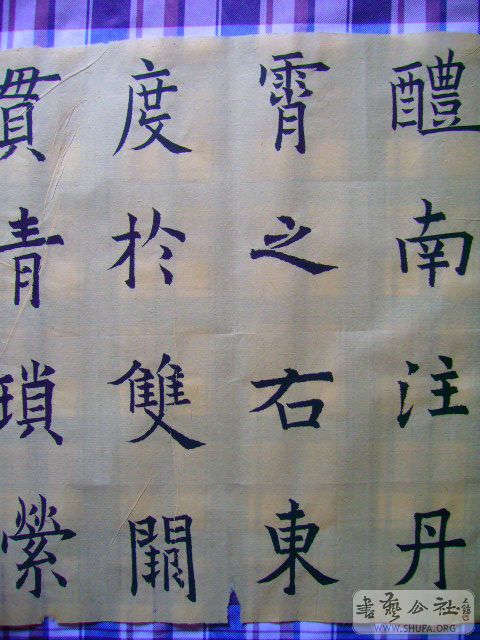 醴南注丹
霄之右東
度於雙闕
貫青瑣縈
書藝公社
WWW.SHUFA.ORG